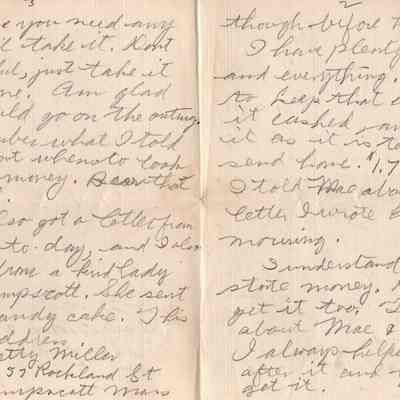 3
e you need any
l take it. Kent
ful, just take it
me. Am glad
uld go on the outing.
mber what I told
out when to look
money. Bear that
lso got a letter from
to-day, and I also
from a kind lady
mpscott. She sent
andy cake. This
ddress
etty Miller
37 Rockland St
mpscott Mass
2
though before
I have plenty
and everything.
to keep that
it cashed
it as it is
send home. $1.7
I told Mae abou
letter I wrote
mourning.
I understand
state money.
get it too.
about Mae &
I always helpe
after it and
got it.